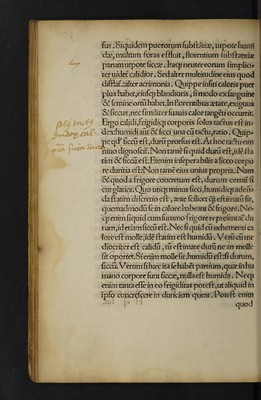 sur. Siquidem puerorum substātiæ, utpote humi
dæ, multum foras effluit, florentium substantiæ
parum utpote siccæ. Itaq; neuter eorum simplici‑
ter uidet calidior. Sed alter multitudine eius quod
alter acrimonia. Quippe insiti caloris puer
plus habet, eiusq; blandioris, si modo ex sanguine
& semine ortū habet. In florentibus ætate, exiguus
& siccus, nec similiter suauis calor tangēti occurrit.
Ergo calidi, frigidiq; corporis solus tactus est in‑
dex: humidi aūt & sicci unā cū tactu, ratio. Quip‑
pe qd siccū est, durū prorsus est. At hoc tactu em
dinoscit. Non tamē si quid durū est, id sta
tim & siccū est. Etenim inseparabilis a sicco corpo
re duritia est: Non tamē eius unius propria. Nam
& quod a frigore concretum est, durum cernit: si
cut glacies. Quo utiq; minus sicci, humidiq; adeū‑
da statim discretio est, ante scilicet q̄ estimatū sit,
quemadmodū se in calore habeant & frigore. Ne‑
q; enim si quid cum summo frigore repræsentat du
rum, id etiam siccū est. Nec si quid cū uehementi ca
lore est molle, id statim est humidū. Verū cū me
diocriter est calidū, tū estimare durū ne an molle
sit oportet. Si enim molle sit, humidū est: si durum,
siccū. Verum si hæc ita se habēt partium, quæ in hu
mano corpore sunt siccæ, nulla est humida. Neq;
enim tanta esse in eo frigiditas potest, ut aliquid in
ipso concrescere in duriciem queat. Potest enim
quod